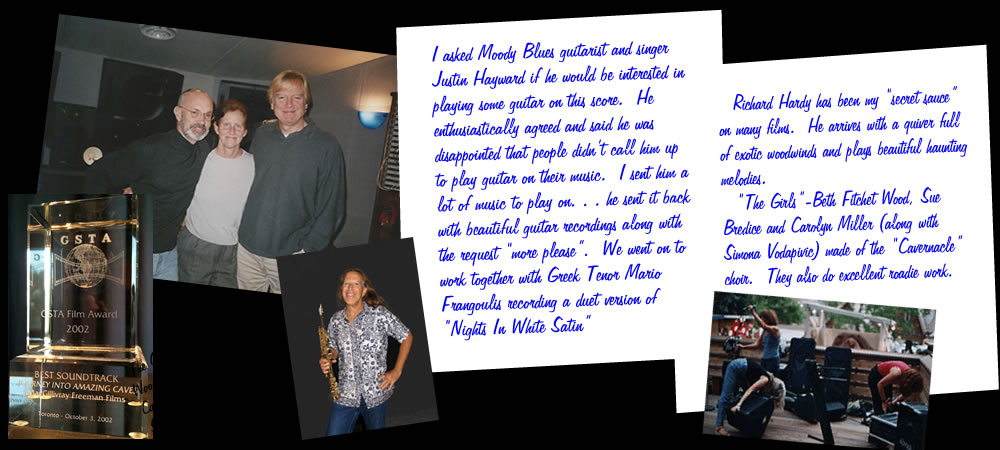 I asked Moody Blues guitarist and singer
Justin Hayward if he would be interested in
playing some guitar on this score. He
enthusiastically agreed and said he was
disappointed that people didn't call him up
to play guitar on their music. I sent him a
lot of music to play on. . . he sent it back
with beautiful guitar recordings along with
the request "more please". We went on to
work together with Greek Tenor Mario
Frangoulis recording a duet version of
"Nights In White Satin"
Richard Hardy has been my "secret sauce"
on many films. He arrives with a quiver full
of exotic woodwinds and plays beautiful haunting
melodies.
"The Girls"-Beth Fitchet Wood, Sue
Bredice and Carolyn Miller (along with
Simona Vodapivic) made of the "Cavernacle"
choir. They also do excellent roadie work.
GSTA
GSTA Film Award
2002
BEST SOUNDTRACK
JOURNEY INTO AMAZING CAVES
Freeman Films
Toronto - October 3, 2002